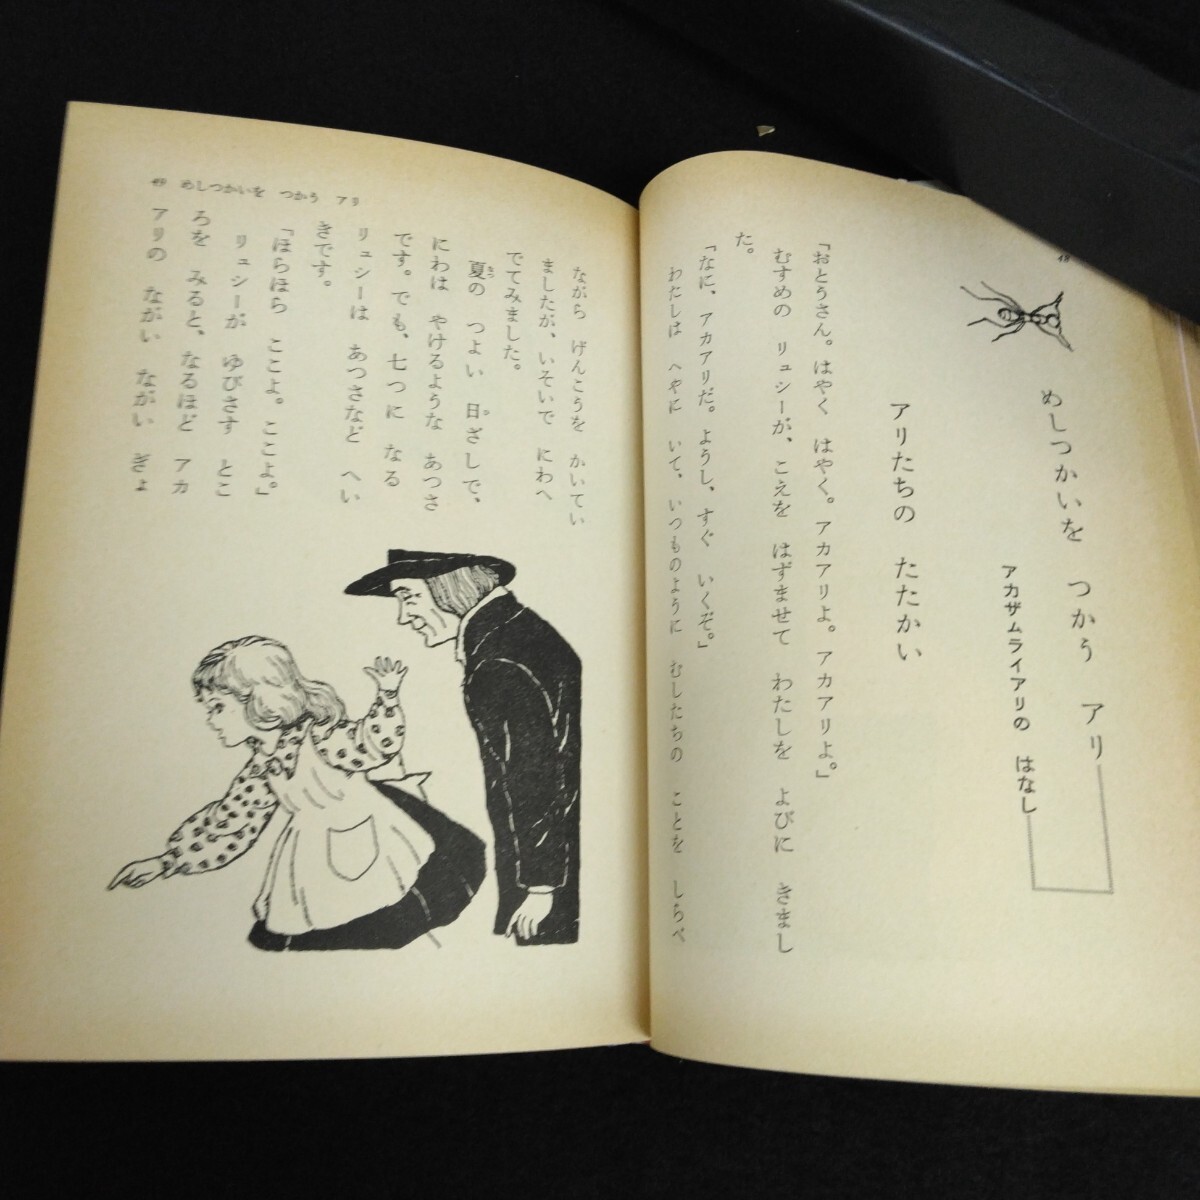 48
めしつかいを つかう アリ
アカザムライアリの はなし
アリたちの たたかい
「おとうさん。はやく はやく。アカアリよ。アカアリよ。」
むすめの リュシーが、こえを はずませて わたしを よびに きまし
た。
「なに、アカアリだ。ようし、すぐ いくぞ。」
わたしは へやに いて、いつものように むしたちの ことを しらべ
49 めしつかいを つかう アリ
ながら げんこうを かいてい
ましたが、いそいで にわへ
でてみました。
夏の つよい 日ざしで、
にわは やけるような あつさ
です。でも、七つに なる
リュシーは あつさなど へい
きです。
「ほらほら ここよ。ここよ。」
リュシーが ゆびさす とこ
ろを みると、なるほど アカ
アリの ながい ながい ぎょ